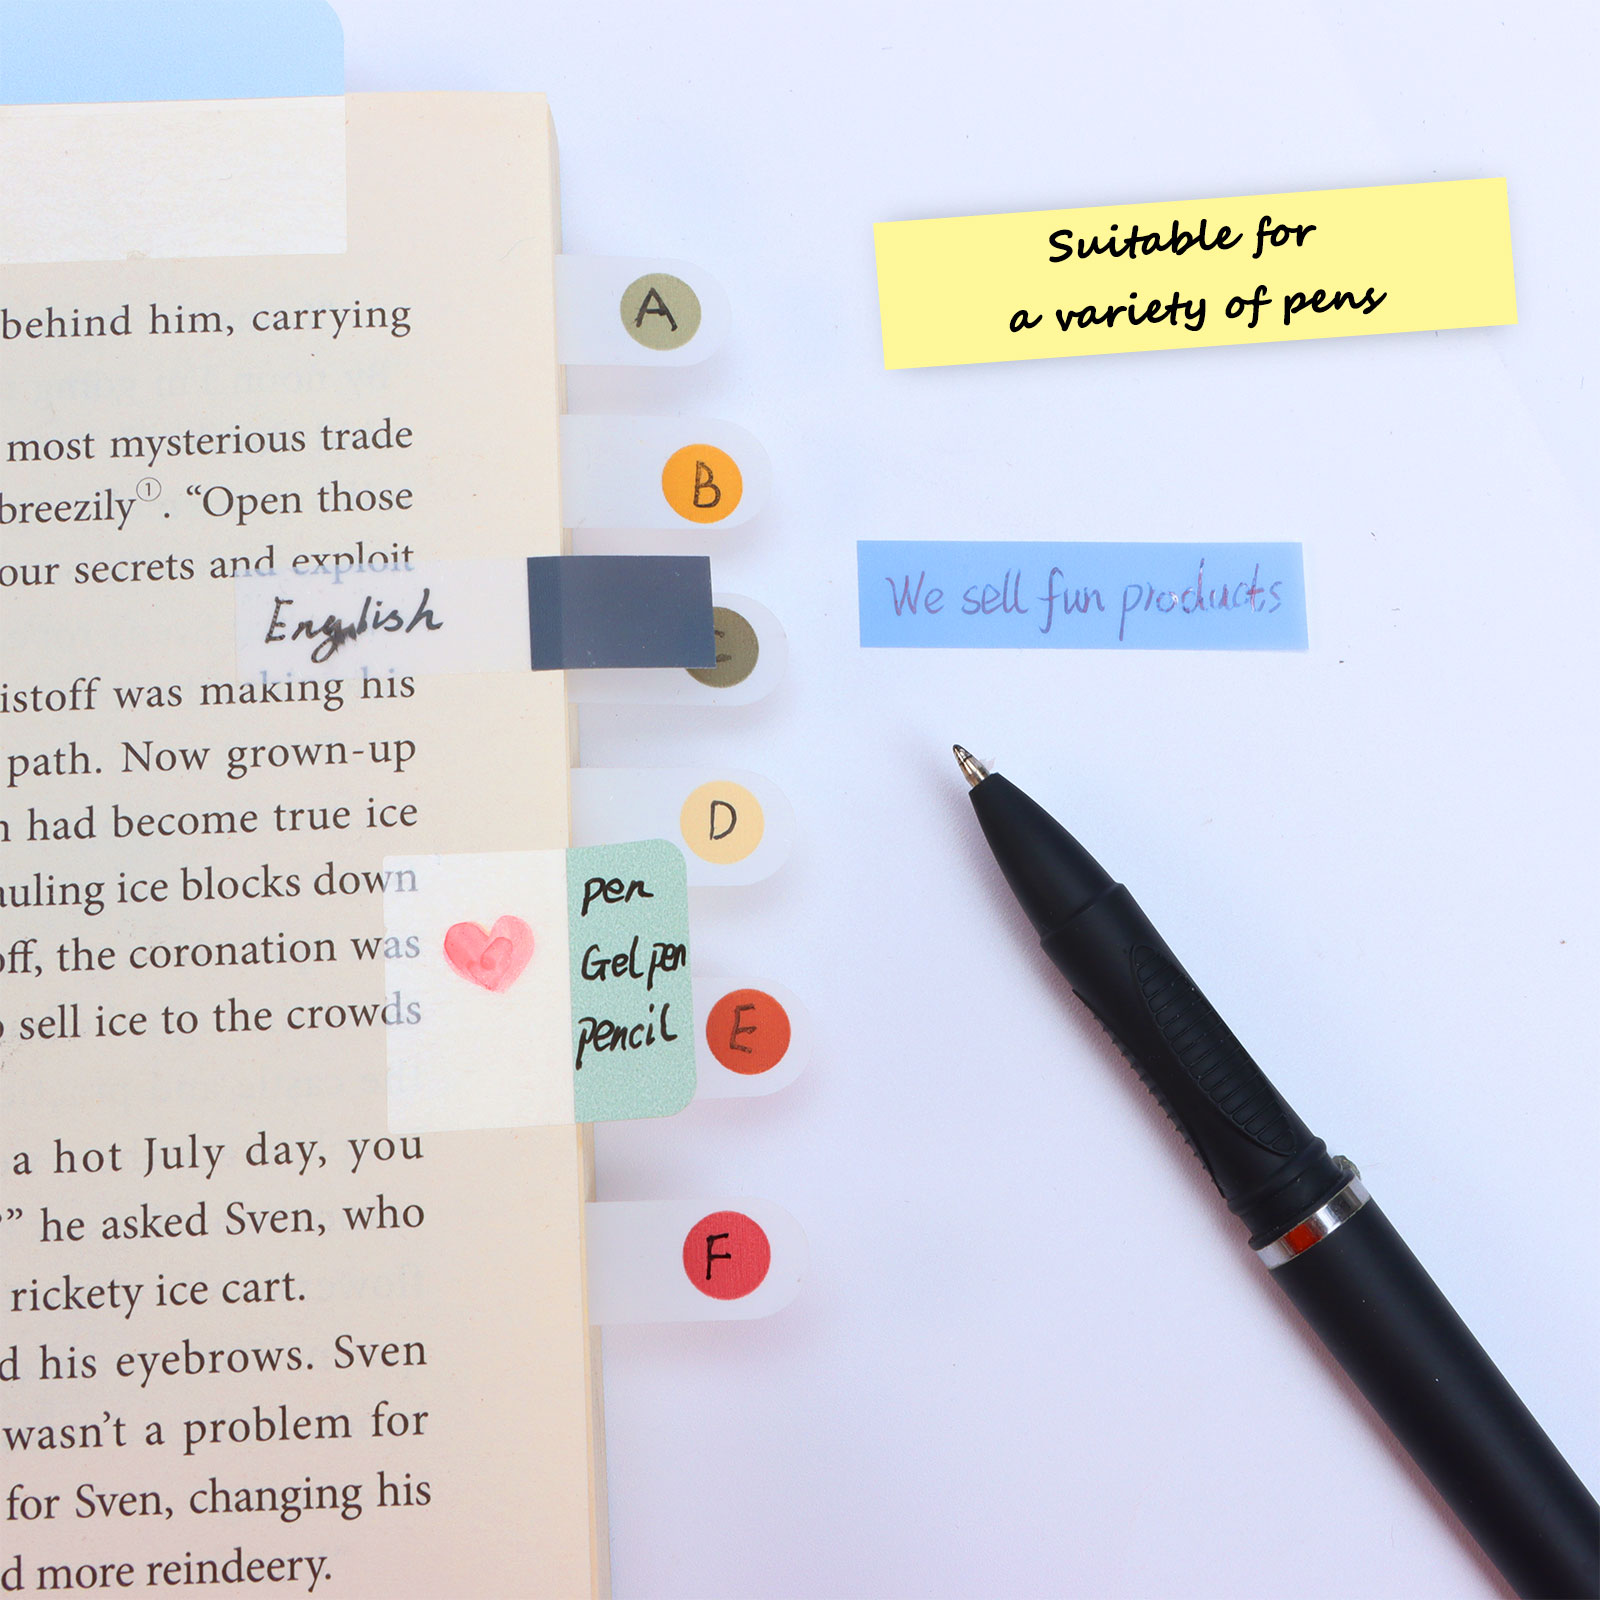 Suitable for
a variety of pens
We sell fun products
A
B
D
E
F
English
pen
Gel pen
pencil
behind him, carrying
most mysterious trade
breezily①. “Open those
our secrets and exploit
istoff was making his
path. Now grown-up
had become true ice
auling ice blocks down
off, the coronation was
sell ice to the crowds
a hot July day, you
” he asked Sven, who
rickety ice cart.
d his eyebrows. Sven
wasn’t a problem for
for Sven, changing his
d more reindeery.